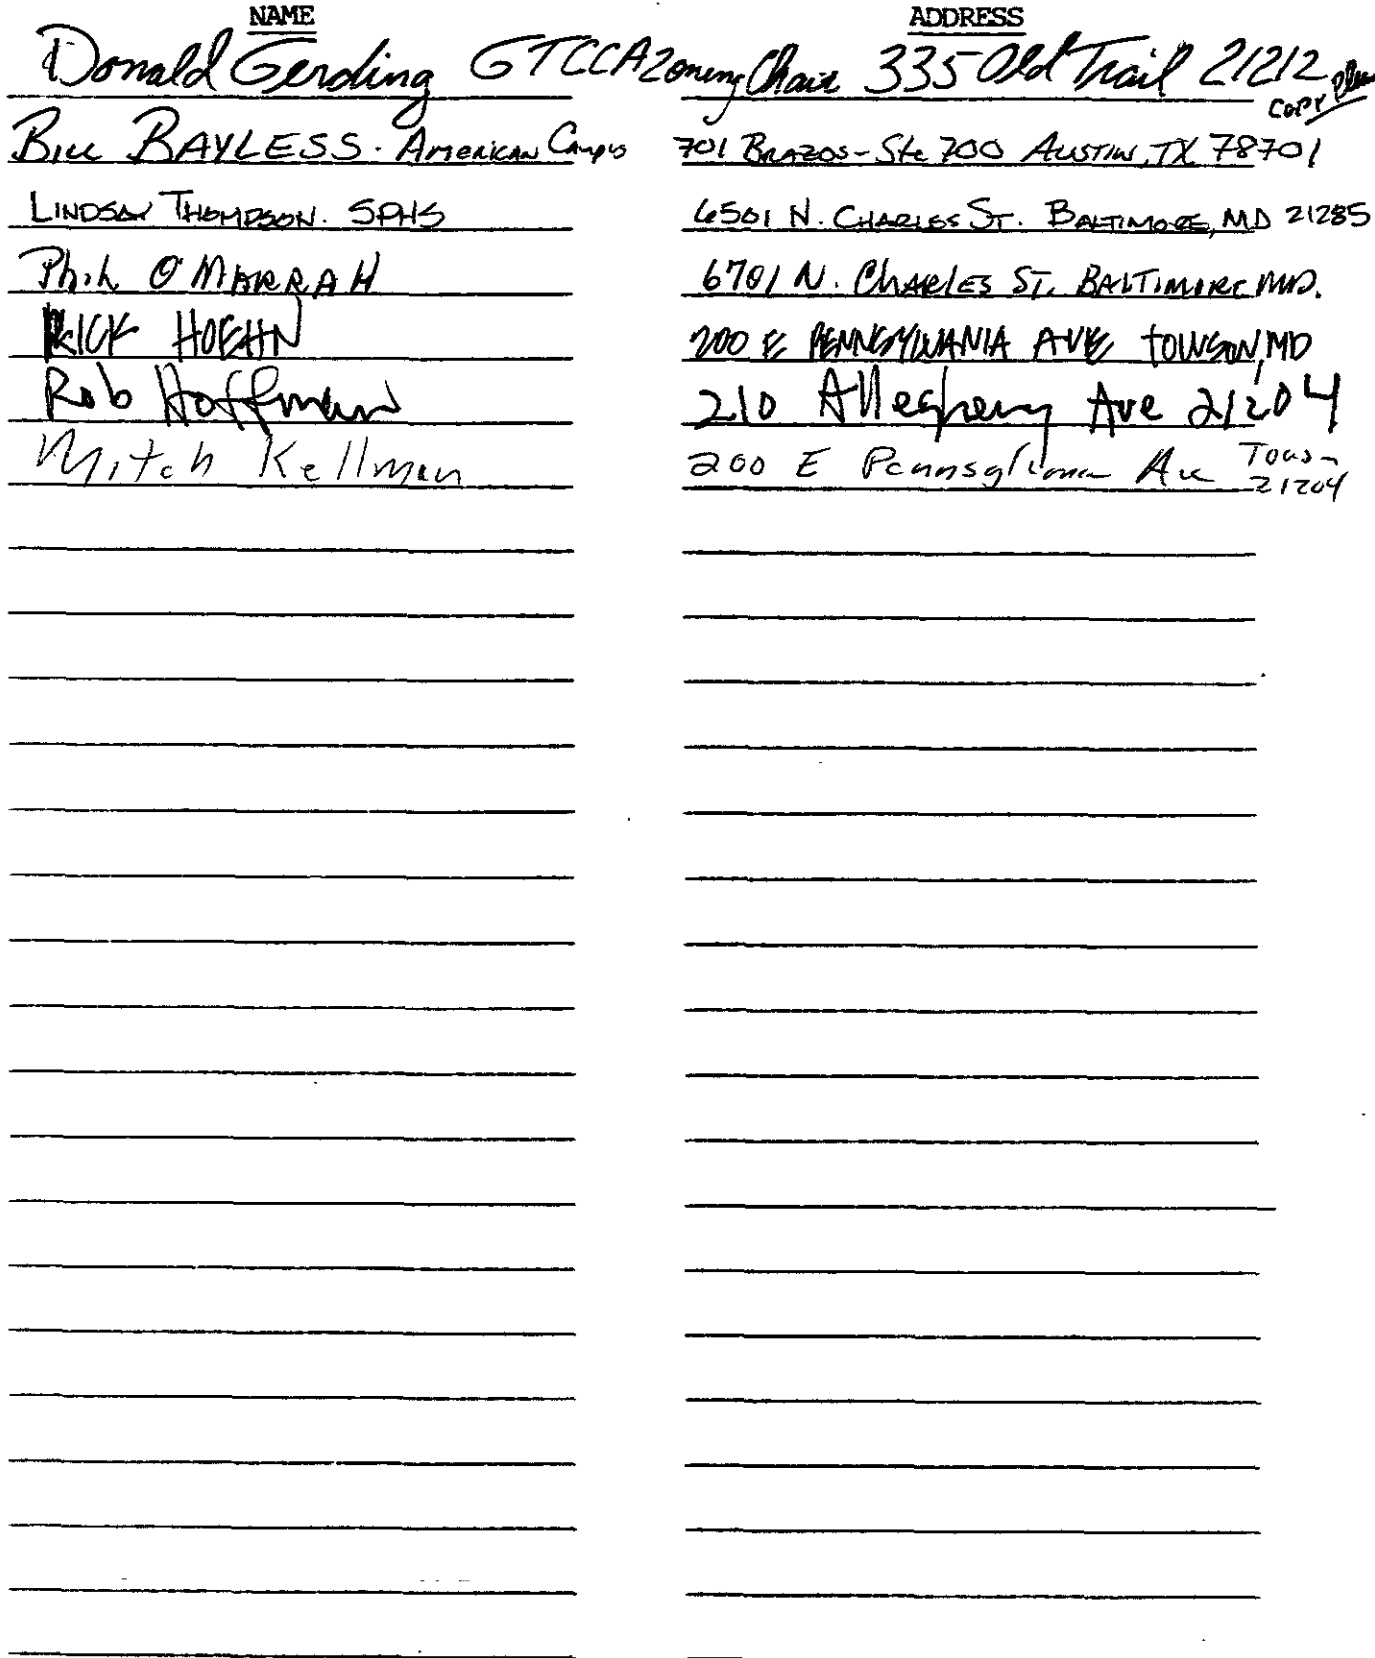 NAME ADDRESS
Donald Gerding GTCCA Zoning Chair 335 Old Trail 21212 COPY Please
Bill BAYLESS. AMERICAN Campus 701 BRAZOS - Ste 700 AUSTIN, TX 78701
LINDSAY THOMPSON. SPHS 6501 N. CHARLES ST. BALTIMORE, MD 21285
Phil O MARRAH 6701 N. CHARLES ST. BALTIMORE MD.
RICK HOEHN 200 E PENNSYLVANIA AVE TOWSON, MD
Rob Hoffman 210 Allegheny Ave 21204
Mitch Kellman 200 E Pennsylvania Ave Towson 21204